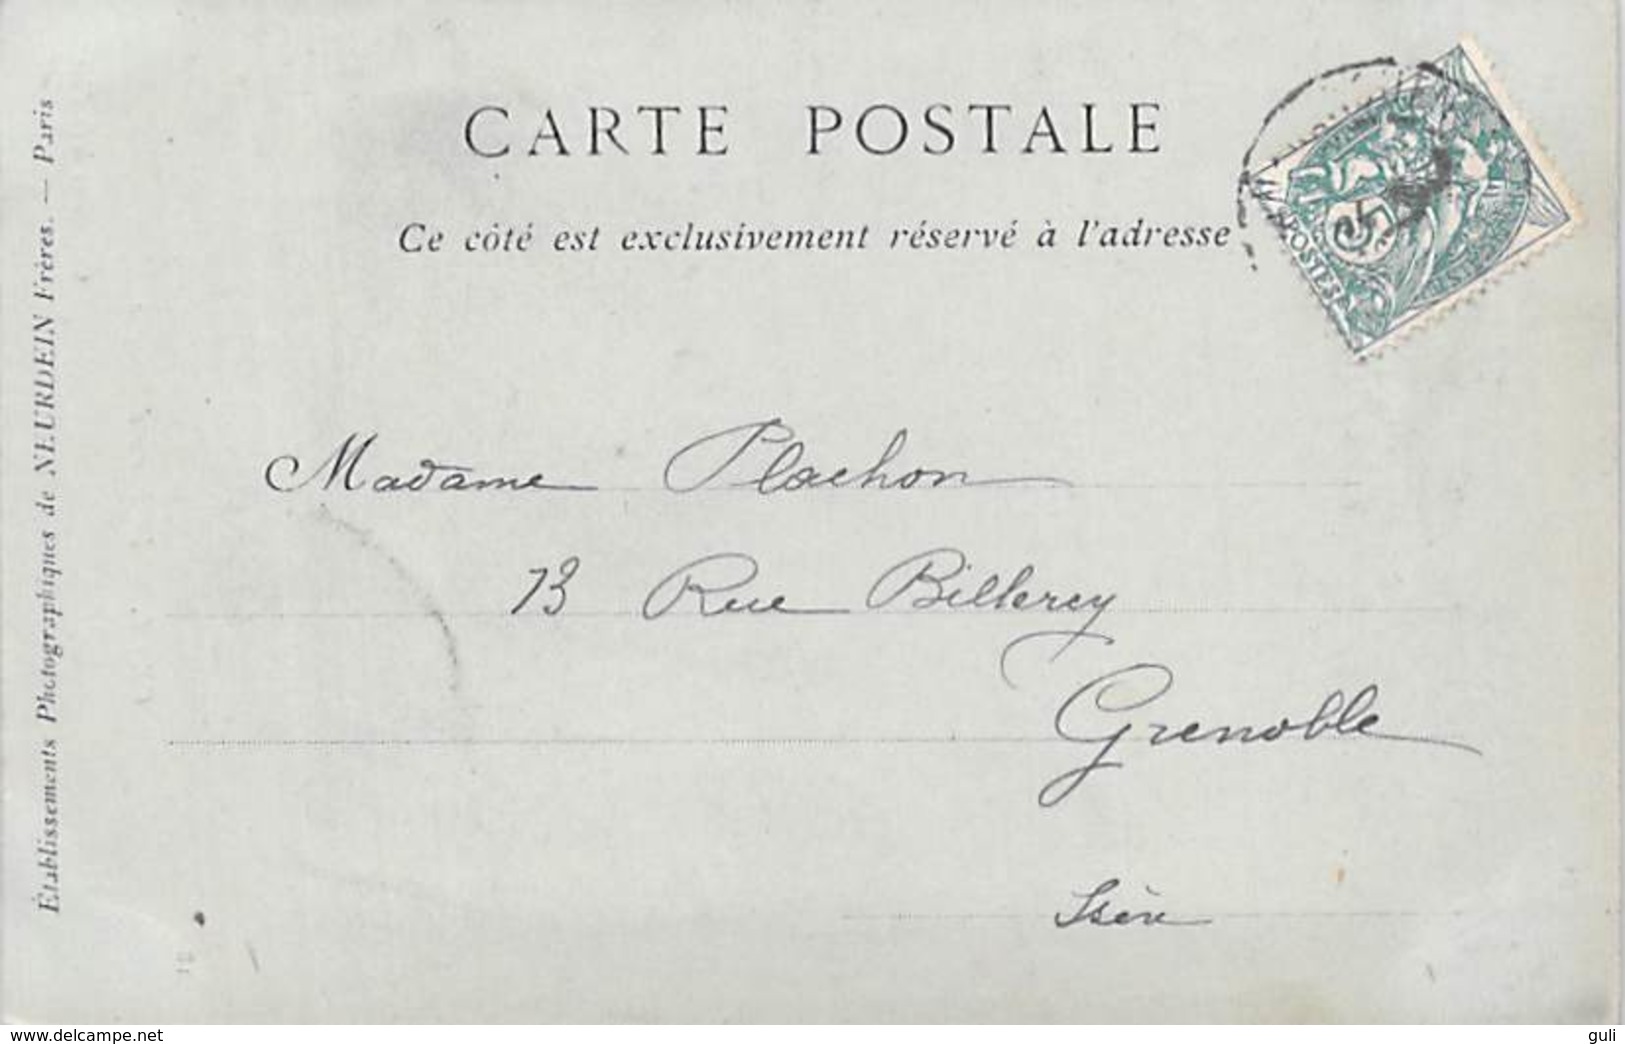 CARTE POSTALE
Ce côté est exclusivement réservé à l'adresse
POSTES
Établissements Photographiques de NEURDEIN Frères. — Paris
Madame Plachon
73 Rue Billerey
Grenoble
Isère
www.delcampe.net
guli